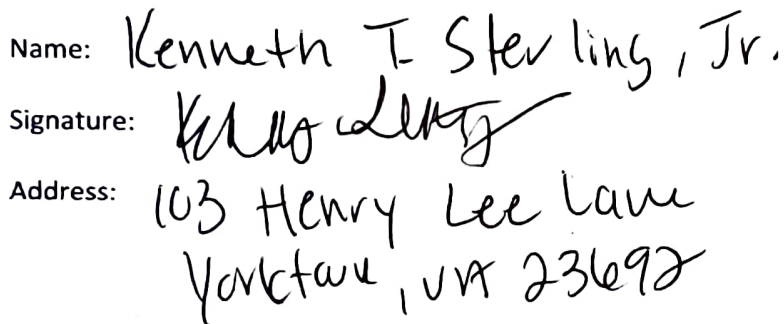 Name: Kenneth T. Sterling, Jr.
Signature:
Address: 103 Henry Lee Lane
Yorktown, VA 23692